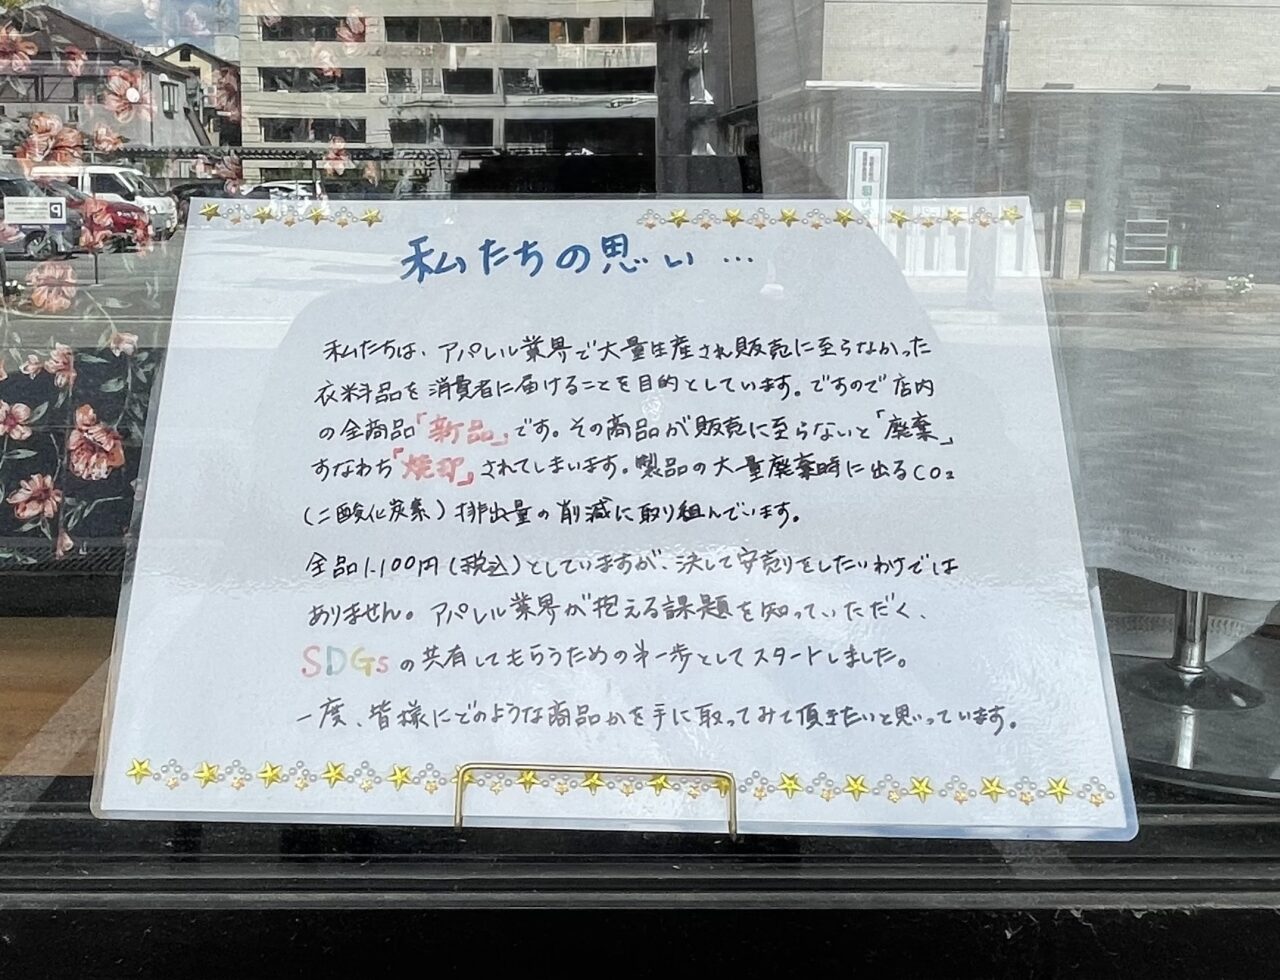 私たちの思い…
私たちは、アパレル業界で大量生産され販売に至らなかった
衣料品を消費者に届けることを目的としています。ですので店内
の全商品「新品」です。その商品が販売に至らないと「廃棄」
すなわち「焼却」されてしまいます。製品の大量廃棄時に出るCO₂
(二酸化炭素)排出量の削減に取り組んでいます。
全品1,100円(税込)としていますが、決して安売りをしたいわけでは
ありません。アパレル業界が抱える課題を知っていただく、
SDGsの共有してもらうための第一歩としてスタートしました。
一度、皆様にどのような商品かを手に取ってみて頂きたいと思っています。
P